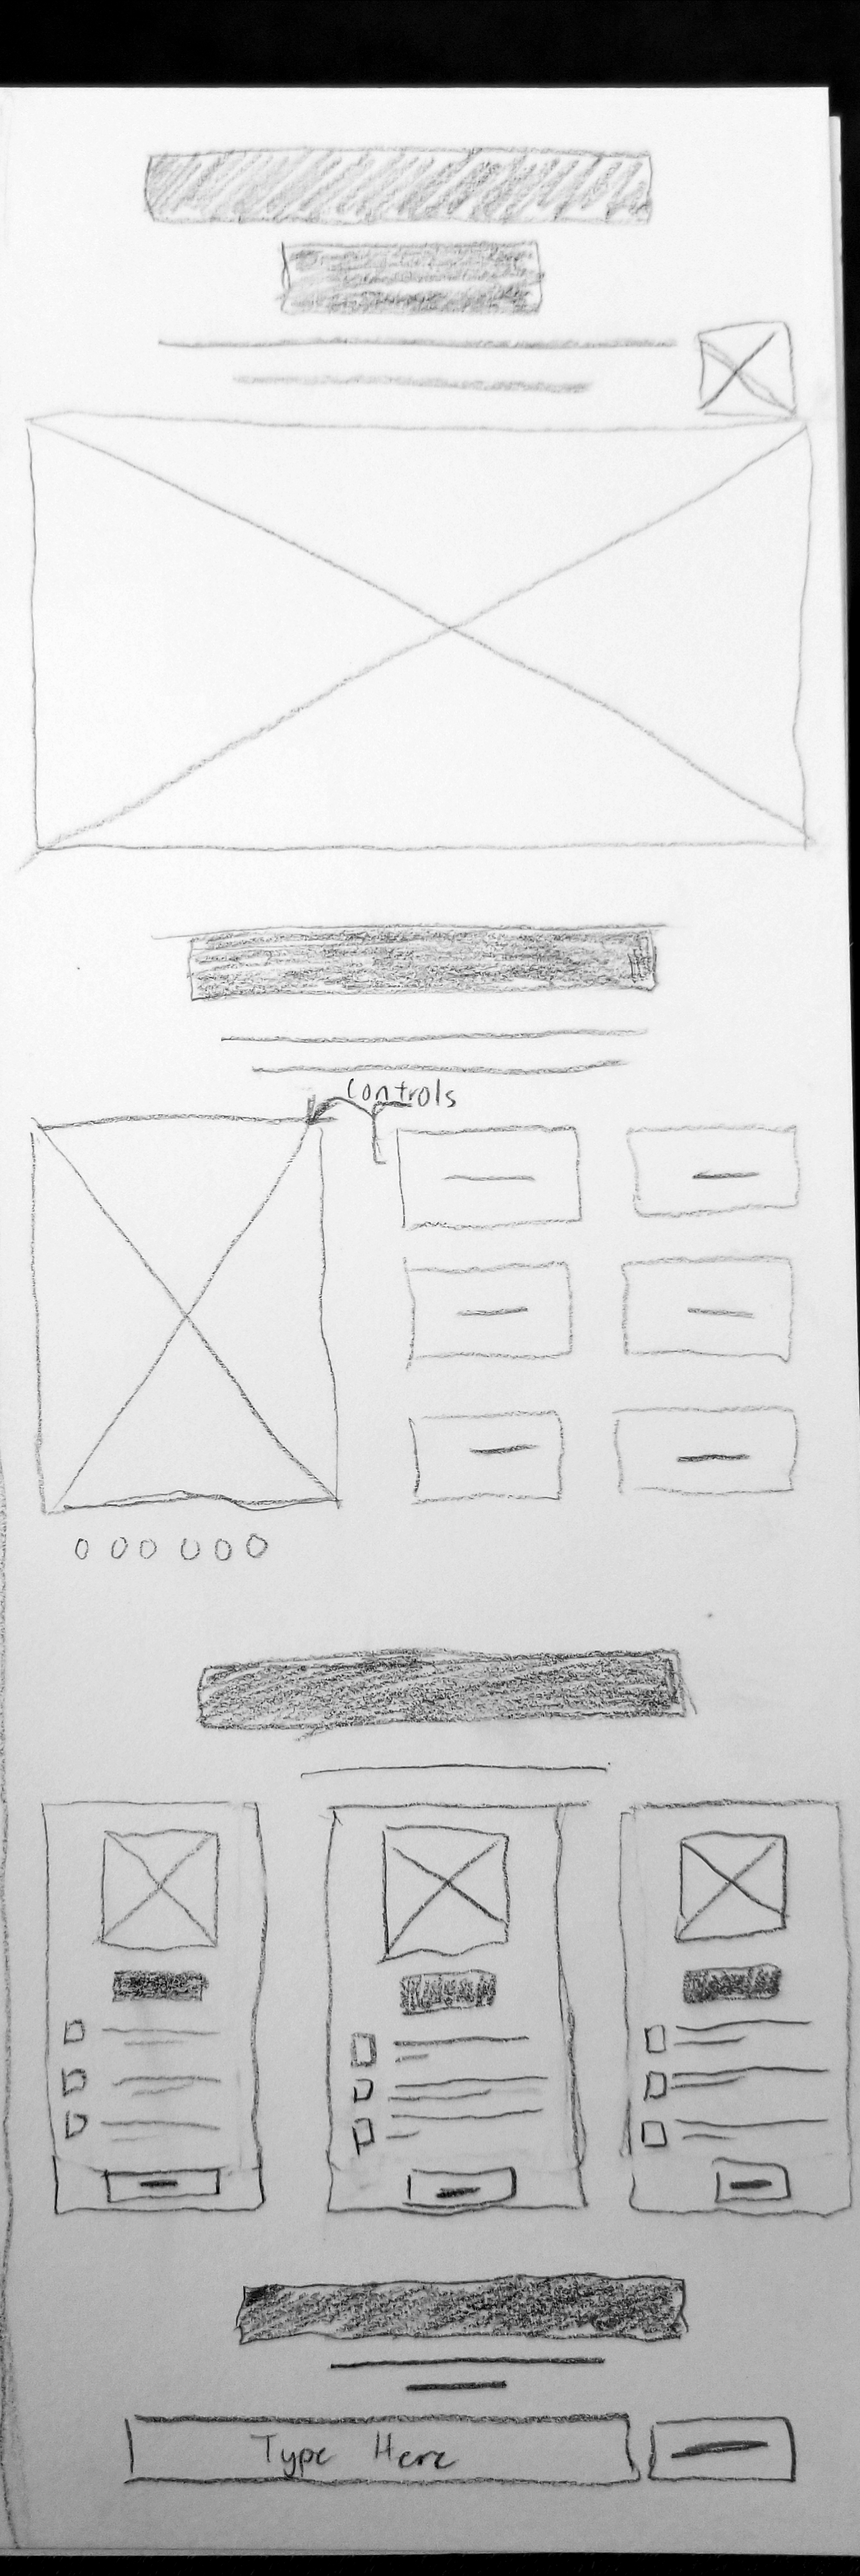 Controls
Type Here